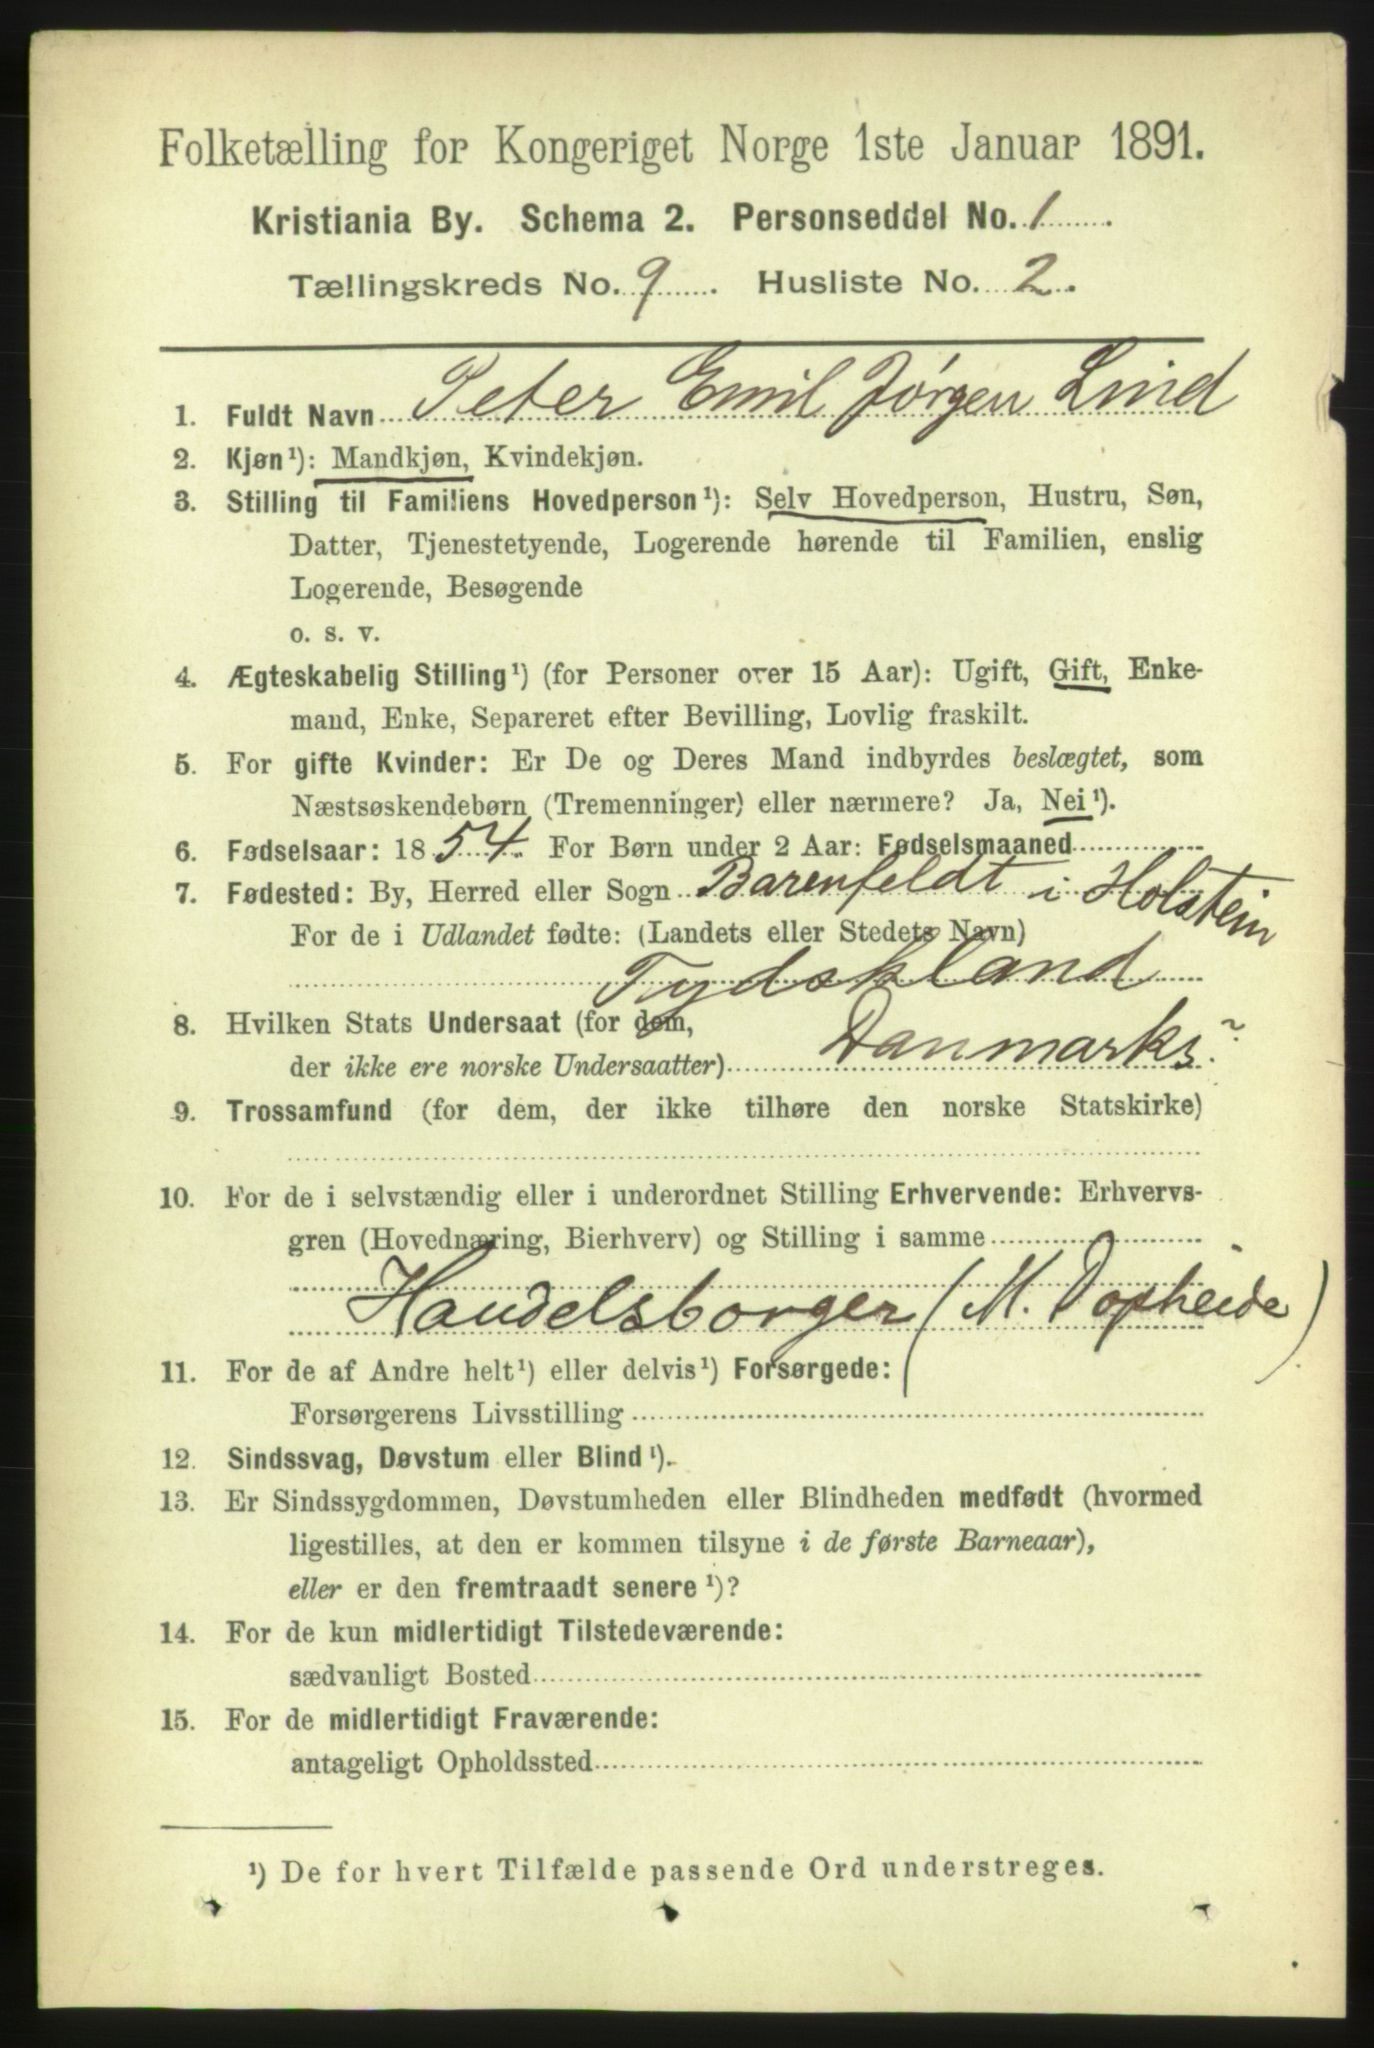 Folketælling for Kongeriget Norge 1ste Januar 1891.
Kristiania By. Schema 2. Personseddel No. 1
Tællingskreds No. 9. Husliste No. 2.
1. Fuldt Navn Peter Emil Jörgen Lind
2. Kjøn¹): Mandkjøn, Kvindekjøn.
3. Stilling til Familiens Hovedperson¹): Selv Hovedperson, Hustru, Søn,
Datter, Tjenestetyende, Logerende hørende til Familien, enslig
Logerende, Besøgende
o. s. v.
4. Ægteskabelig Stilling¹) (for Personer over 15 Aar): Ugift, Gift, Enke-
mand, Enke, Separeret efter Bevilling, Lovlig fraskilt.
5. For gifte Kvinder: Er De og Deres Mand indbyrdes beslægtet, som
Næstsøskendebørn (Tremenninger) eller nærmere? Ja, Nei¹).
6. Fødselsaar: 1854. For Børn under 2 Aar: Fødselsmaaned
7. Fødested: By, Herred eller Sogn Barenfeldt i Holstein
For de i Udlandet fødte: (Landets eller Stedets Navn)
Tydskland
8. Hvilken Stats Undersaat (for dem,
der ikke ere norske Undersaatter) Danmarks?
9. Trossamfund (for dem, der ikke tilhøre den norske Statskirke)
10. For de i selvstændig eller i underordnet Stilling Erhvervende: Erhvervs-
gren (Hovednæring, Bierhverv) og Stilling i samme
Handelsborger (M. Dopheide)
11. For de af Andre helt¹) eller delvis¹) Forsørgede:
Forsørgerens Livsstilling
12. Sindssvag, Døvstum eller Blind¹).
13. Er Sindssygdommen, Døvstumheden eller Blindheden medfødt (hvormed
ligestilles, at den er kommen tilsyne i de første Barneaar),
eller er den fremtraadt senere¹)?
14. For de kun midlertidigt Tilstedeværende:
sædvanligt Bosted
15. For de midlertidigt Fraværende:
antageligt Opholdssted
¹) De for hvert Tilfælde passende Ord understreges.